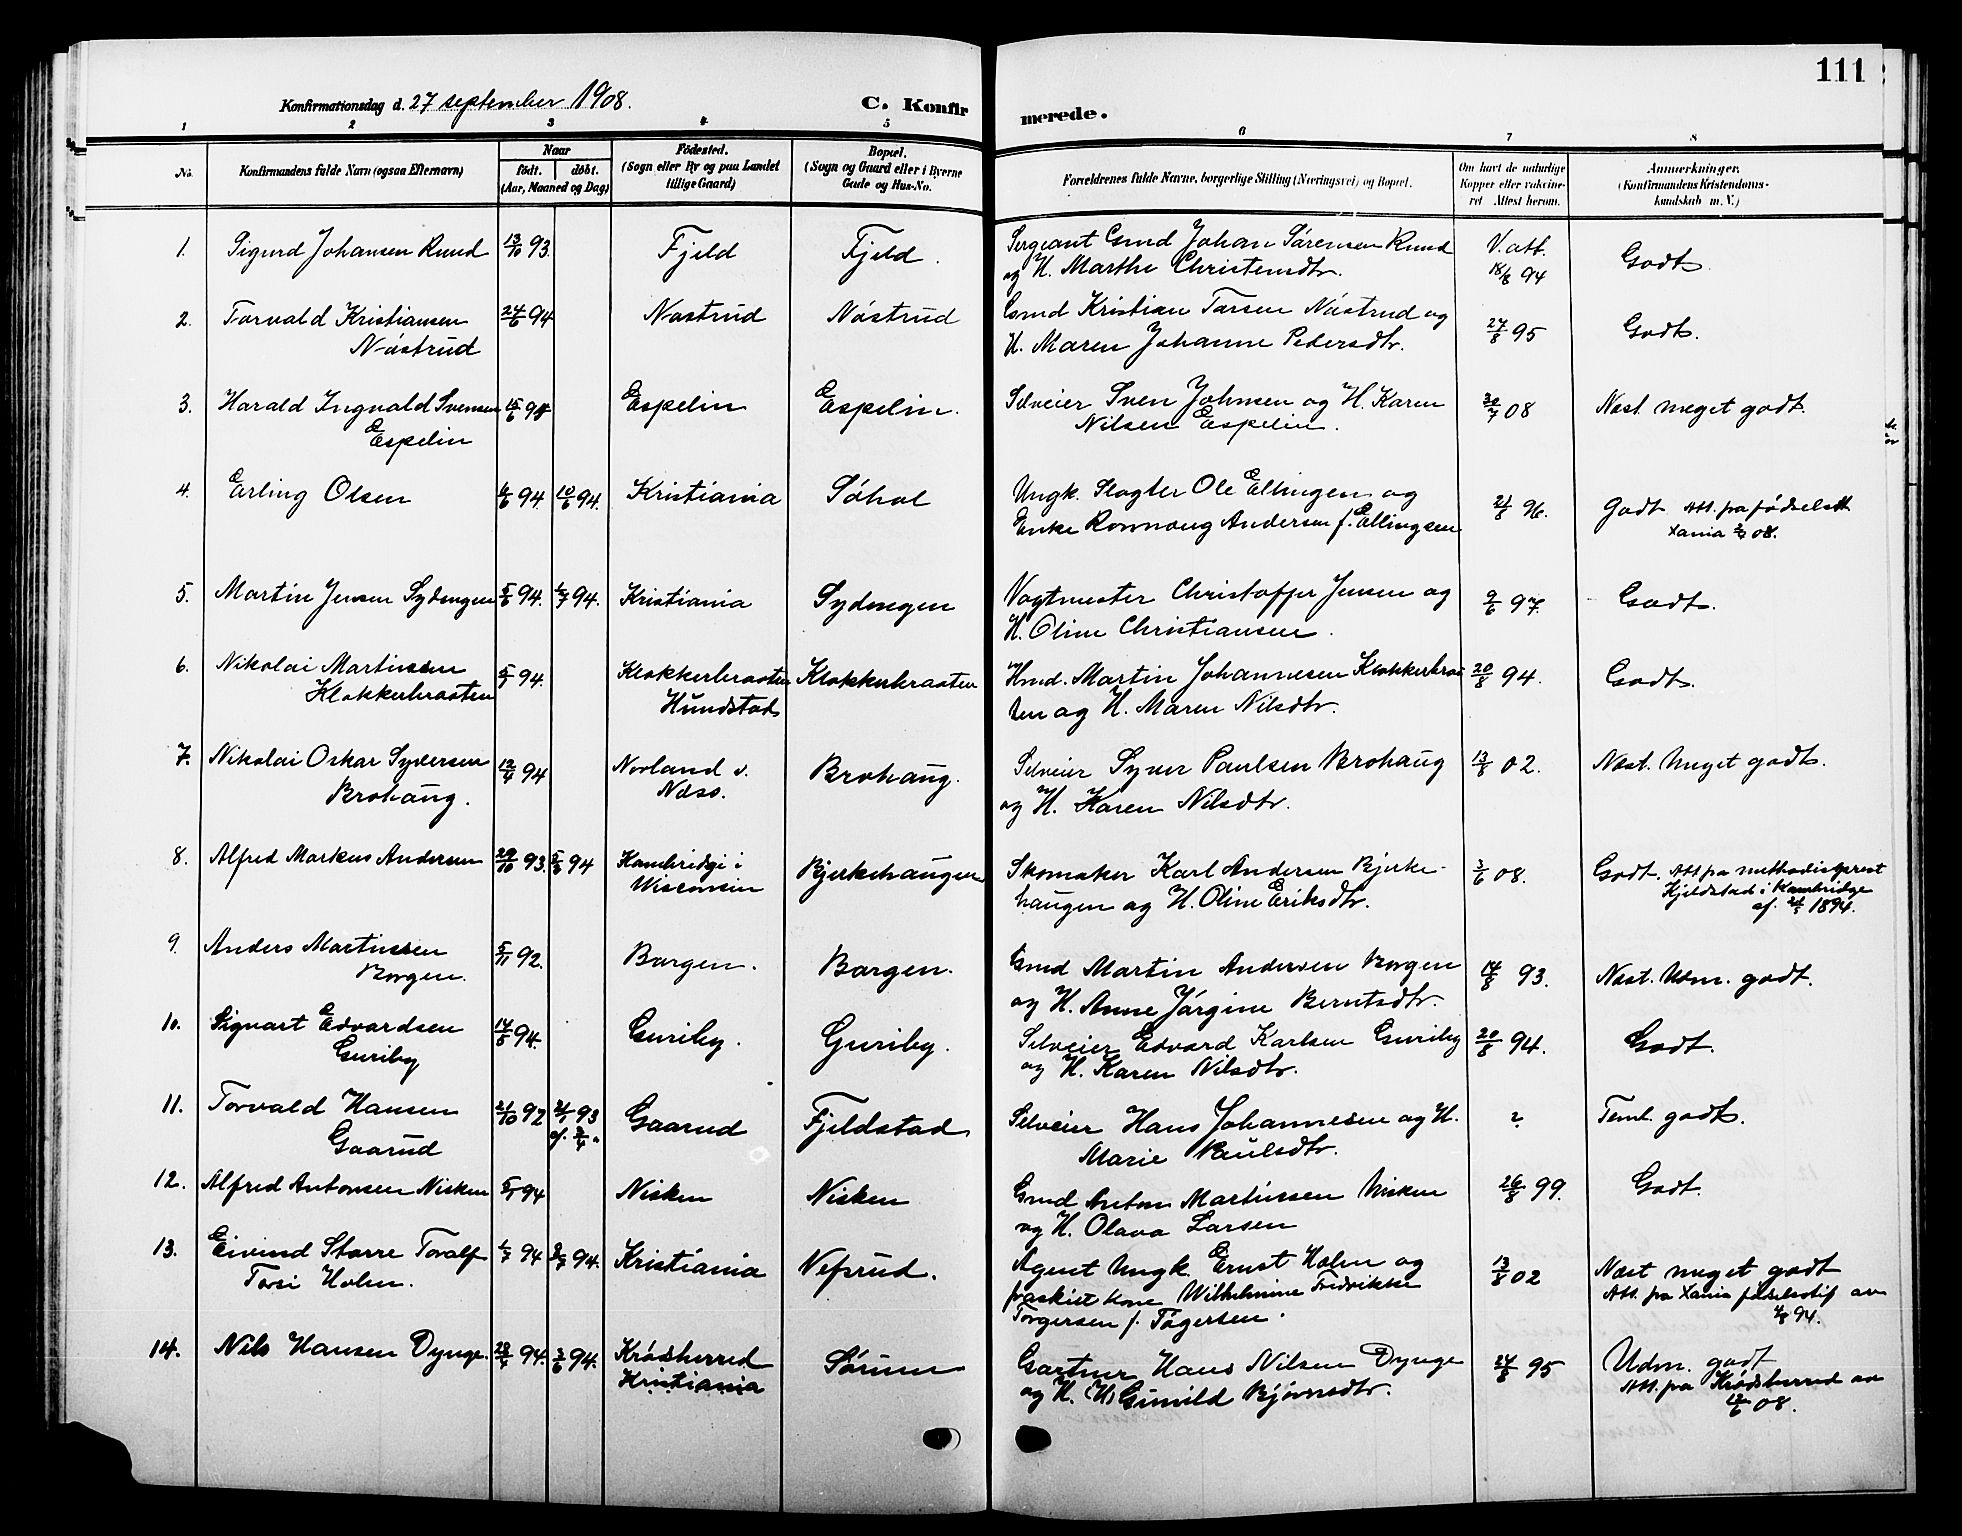 111
Konfirmationsdag d. 27 september 1908.
C. Konfir
merede.
1 2 3 4 5 6 7 8
No.
Konfirmandens fulde Navn (ogsaa Efternavn)
Naar
født. døbt.
(Aar, Maaned og Dag)
Fødested.
(Sogn eller By og paa Landet
tillige Gaard)
Bopæl.
(Sogn og Gaard eller i Byerne
Gade og Hus-No.
Forældrenes fulde Navne, borgerlige Stilling (Næringsvei) og Bopæl.
Om havt de naturlige
Kopper eller vakcine-
ret Attest herom.
Anmærkninger.
(Konfirmandens Kristendoms-
kundskab m. V.)
1. Sigurd Johansen Ruud 13/10 93. Fjeld Fjeld. Sergeant Gmd Johan Sørensen Ruud V. att. Godt.
og H. Marthe Christensdtr. 18/8 94
2. Torvald Kristiansen 24/6 94 Nøstrud Nøstrud Gmd Kristian Torsen Nøstrud og 27/8 95 Godt.
Nøstrud H. Maren Johanne Pedersdtr.
3. Harald Ingvald Svensen 15/6 94 Espelin Espelin. Selveier Sven Johnsen og H. Karen 30/7 08 Næst. meget godt.
Espelin Nilsen Espelin.
4. Erling Olsen 6/6 94 10/6 94. Kristiania Søhol Ungk. Slagter Ole Ellingsen og 21/8 96. Godt Att. fra fødselsst
Enke Ronnaug Andersen f. Ellingsen Xania 08.
5. Martin Jensen Sydengen 5/6 94. 1/7 94. Kristiania Sydengen Vogtmester Christoffer Jensen og 9/6 97. Godt.
H. Oline Christiansen.
6. Nikolai Martinsen 5/7 94. Klokkerbraaten Klokkerbraaten Hmd. Martin Johannesen Klokkerbraa 20/8 94. Godt.
Klokkerbraaten Hundstad ten og H. Maren Nilsdtr.
7. Nikolai Oskar Syversen 12/4 94 Norland v. Brohaug. Selveier Syver Paulsen Brohaug 13/8 02. Næst. meget godt.
Brohaug. Næss. og H. Karen Nilsdtr.
8. Alfred Markus Andersen 29/10 93. 94 Kambridge i Bjerkehaugen Skomaker Karl Andersen Bjerke- 3/6 08. Godt. Att fra methodistprest
Wisconsin haugen og H. Oline Eriksdtr. Hjeldstad i Kambridge
af. 1894.
9. Anders Martinsen 5/11 92. Borgen. Borgen. Gmd Martin Andersen Borgen 14/8 93. Næst. Udm. godt.
Borgen. og H. Anne Jørgine Berntsdtr.
10. Sigvart Edvardsen 14/5 94. Guriby. Guriby. Selveier Edvard Karlsen Guriby 20/8 94. Godt.
Guriby og H. Karen Nilsdtr.
11. Torvald Hansen 21/10 92 2/1 93 Gaarud Fjeldstad Selveier Hans Johannesen og H. ? Teml. godt.
Gaarud Marie Paulsdtr.
12. Alfred Antonsen Nisken 5/1 94 Nisken Nisken Gmd Anton Martinsen Nisken 26/8 99. Godt.
og H. Olava Larsen
13. Eivind Starre Toralf 1/7 94 94. Kristiania Nefsrud. Agent Ungk. Ernst Holm og 13/8 02 Næst meget godt
Holm. fraskilt kone Wilhelmine Fredrikke Att. fra Xania fødselsstif av
Torgersen f. Tøgersen. 94.
14. Nils Hansen Dynge. 28/4 94. 3/6 94. Krødsherred Sørum Gartner Hans Nilsen Dynge 24/8 95 Udm. godt
Kristiania og H. Gunild Bjørnsdtr. Att. fra Krødsherred av
08.